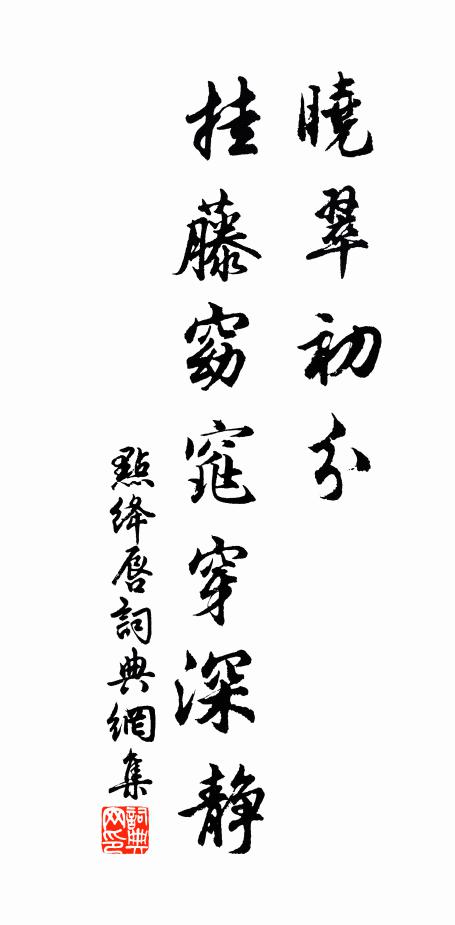 曉翠初分
挂藤窈窕穿深静
點绛唇詞典網集
詞典网印